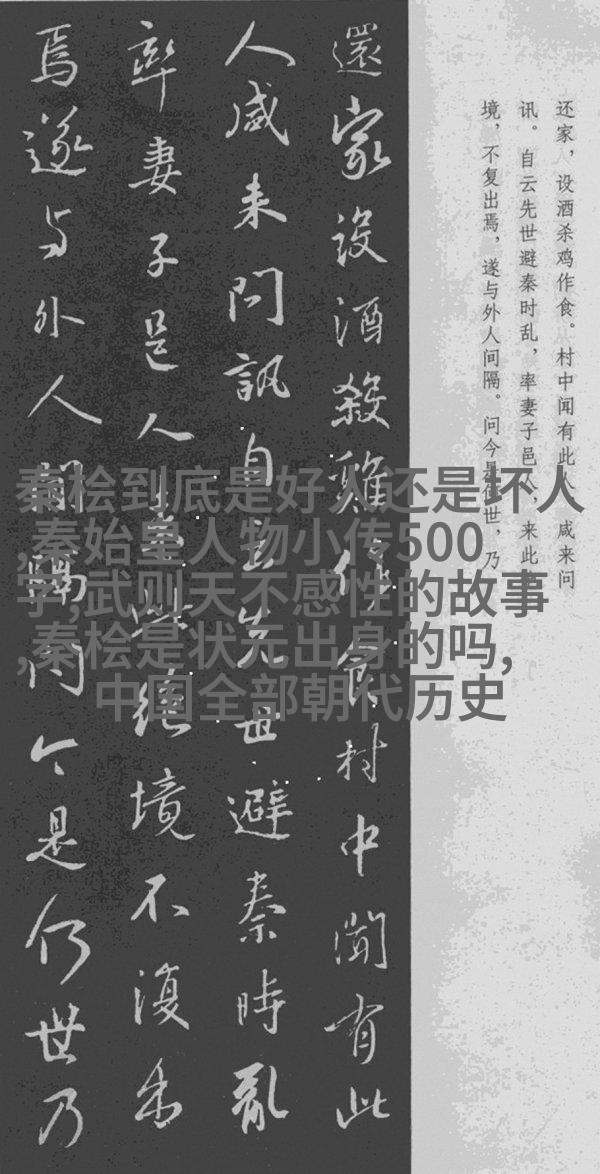 还家，设酒杀鸡作食。村中闻有此人，咸来问
讯。自云先世避秦时乱，率妻子邑人，来此
境，不复出焉，遂与外人间隔。问今是何世，乃
還家設酒殺雞作食村中聞有此
人咸来問訊自云先世避秦時亂
率妻子邑人来此絶境不復出
焉遂与外人間隔問今是何世乃
秦桧到底是好人还是坏人
,秦始皇人物小传500
字,武则天不感性的故事
,秦桧是状元出身的吗,
中国全部朝代历史